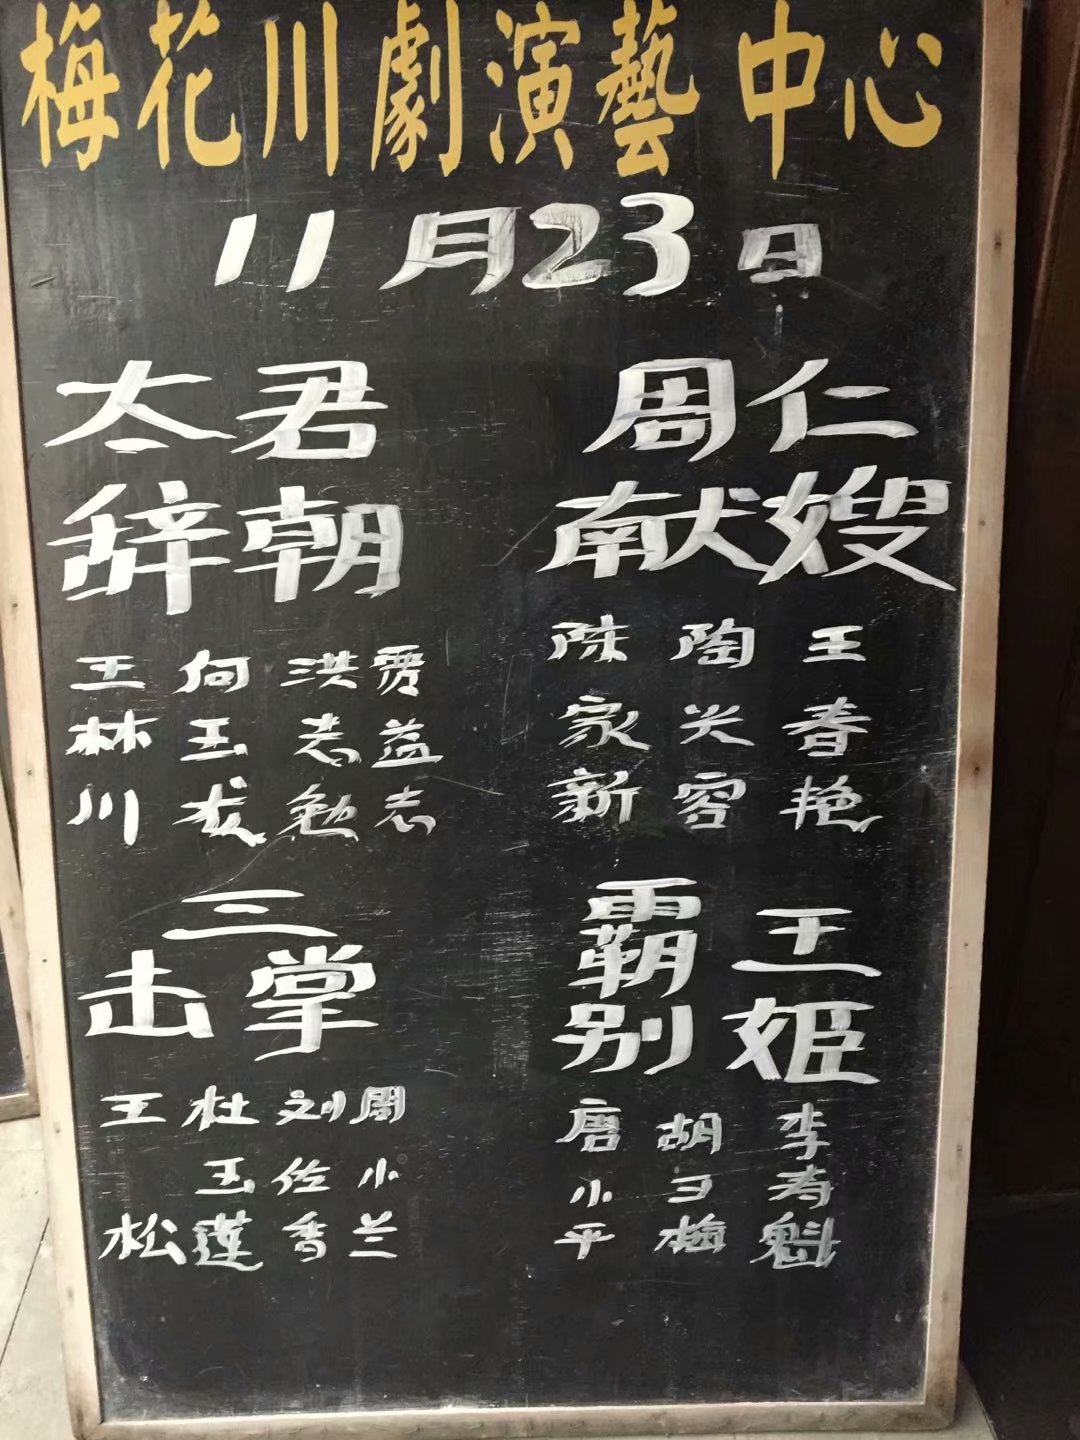 梅花川劇演藝中心
11月23日
太君
辞朝
王林川
何玉
洪志勉
益志
周仁
献嫂
陈家新
陶光容
王春艳
三
击掌
王松
杜玉莲
刘佐香
周小兰
霸王
别姬
唐小平
胡 梅
李寿魁